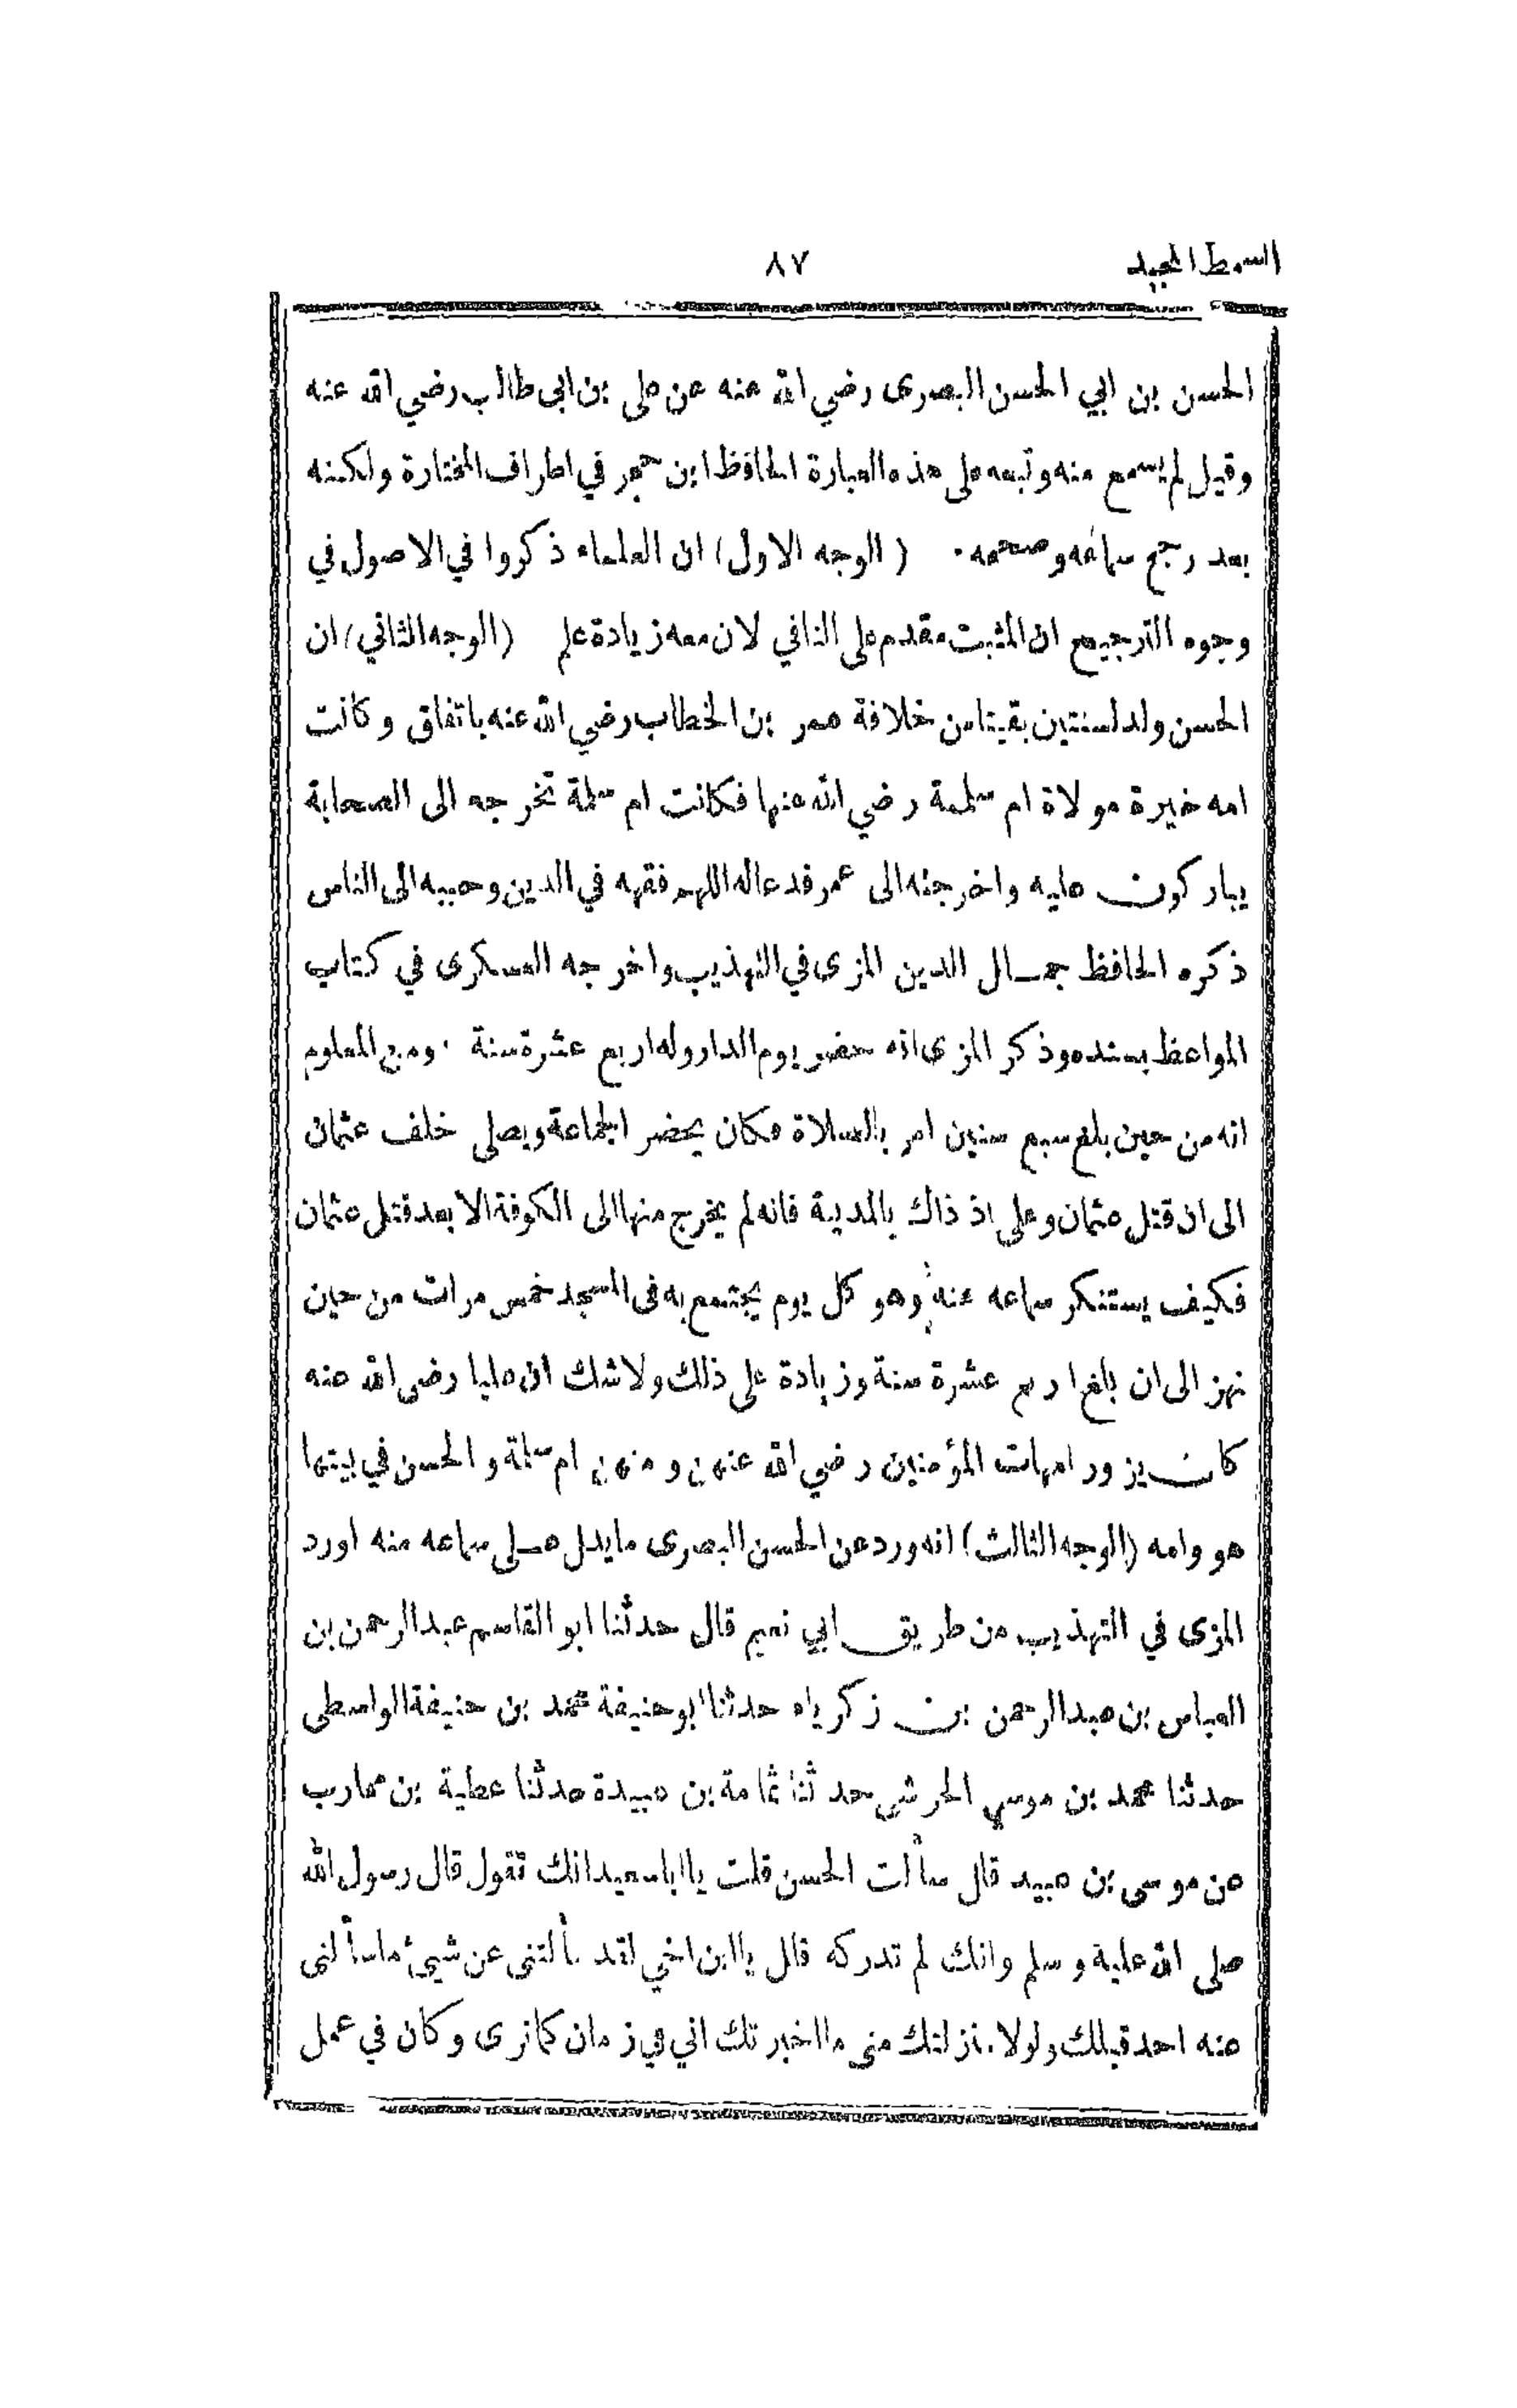 السمط المجيد
٨٧
الحسن بن ابي الحسن البصرى رضي الله عنه عن علي بن ابي طالب رضي الله عنه
وقيل لم يسمع منه وتبعه على هذه العبارة الحافظ ابن حجر في اطراف المختارة ولكنه
بعد رجح سماعه وصححه٠ (الوجه الاول) ان العلماء ذكروا في الاصول في
وجوه الترجيح ان المثبت مقدم على النافي لان معه زيادة علم (الوجه الثاني) ان
الحسن ولد لسنتين بقيتا من خلافة عمر بن الخطاب رضي الله عنه باتفاق وكانت
امه خيرة مولاة ام سلمة رضي الله عنها فكانت ام سلمة تخرجه الى الصحابة
يباركون عليه واخرجته الى عمر فدعا له اللهم فقهه في الدين وحببه الى الناس
ذكره الحافظ جمال الدين المزى في التهذيب واخرجه العسكرى في كتاب
المواعظ بسنده وذكر المزى انه حضر يوم الدار وله اربع عشرة سنة ٠ ومن المعلوم
انه من حين بلغ سبع سنين امر بالصلاة فكان يحضر الجماعة ويصلى خلف عثمان
الى ان قتل عثمان وعلي اذ ذاك بالمدينة فانه لم يخرج منها الى الكوفة الا بعد قتل عثمان
فكيف يستنكر سماعه عنه وهو كل يوم يجتمع به فى المسجد خمس مرات من حين
نهز الى ان بلغ اربع عشرة سنة وزيادة على ذلك ولا شك ان عليا رضى الله عنه
كان يزور امهات المؤمنين رضي الله عنهن ومنهن ام سلمة والحسن في بيتها
هو وامه (الوجه الثالث) انه ورد عن الحسن البصرى ما يدل على سماعه منه اورد
المزى في التهذيب من طريق ابي نعيم قال حدثنا ابو القاسم عبدالرحمن بن
العباس بن عبدالرحمن بن زكرياء حدثنا ابو حنيفة محمد بن حنيفة الواسطى
حدثنا محمد بن موسي الحرشي حدثنا ثمامة بن عبيدة حدثنا عطية بن محارب
عن موسى بن عبيد قال سألت الحسن قلت يا ابا سعيد انك تقول قال رسول الله
صلى الله عليه وسلم وانك لم تدركه قال يا ابن اخي لقد سألتنى عن شيئ ما سألنى
عنه احد قبلك ولولا منزلتك منى ما اخبرتك اني في زمان كما ترى وكان في عمل